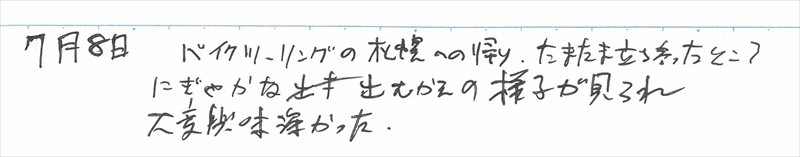 7月8日 バイクツーリングの札幌への帰り、たまたま立ち寄ったところ
にぎやかな出むかえの様子が見られ
大変興味深かった.